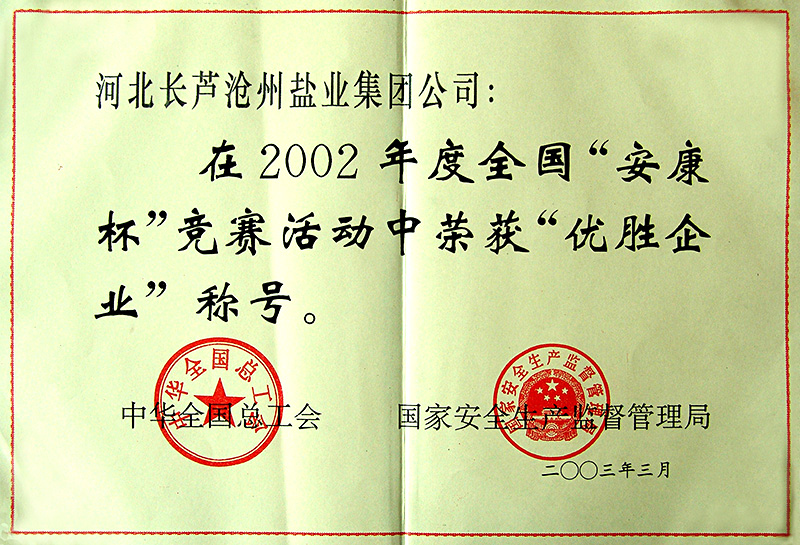 河北长芦沧州盐业集团公司：
在2002年度全国“安康
杯”竞赛活动中荣获“优胜企
业”称号。
中华全国总工会
国家安全生产监督管理局
中华全国总工会
国家安全生产监督管理局
二〇〇三年三月